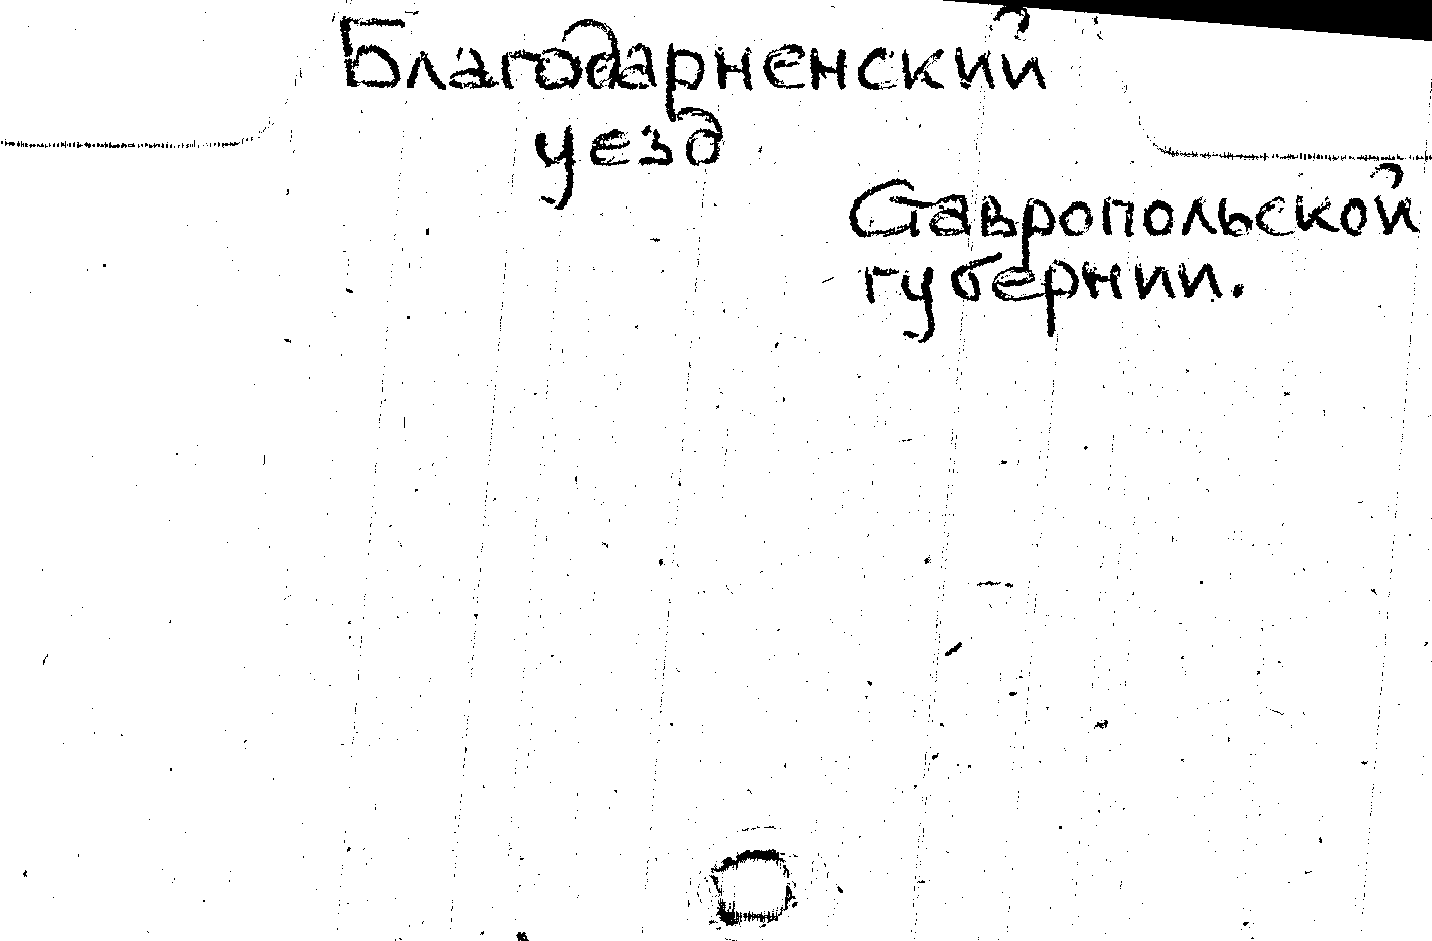 Благодарненский
уезд
Ставропольской
губернии.